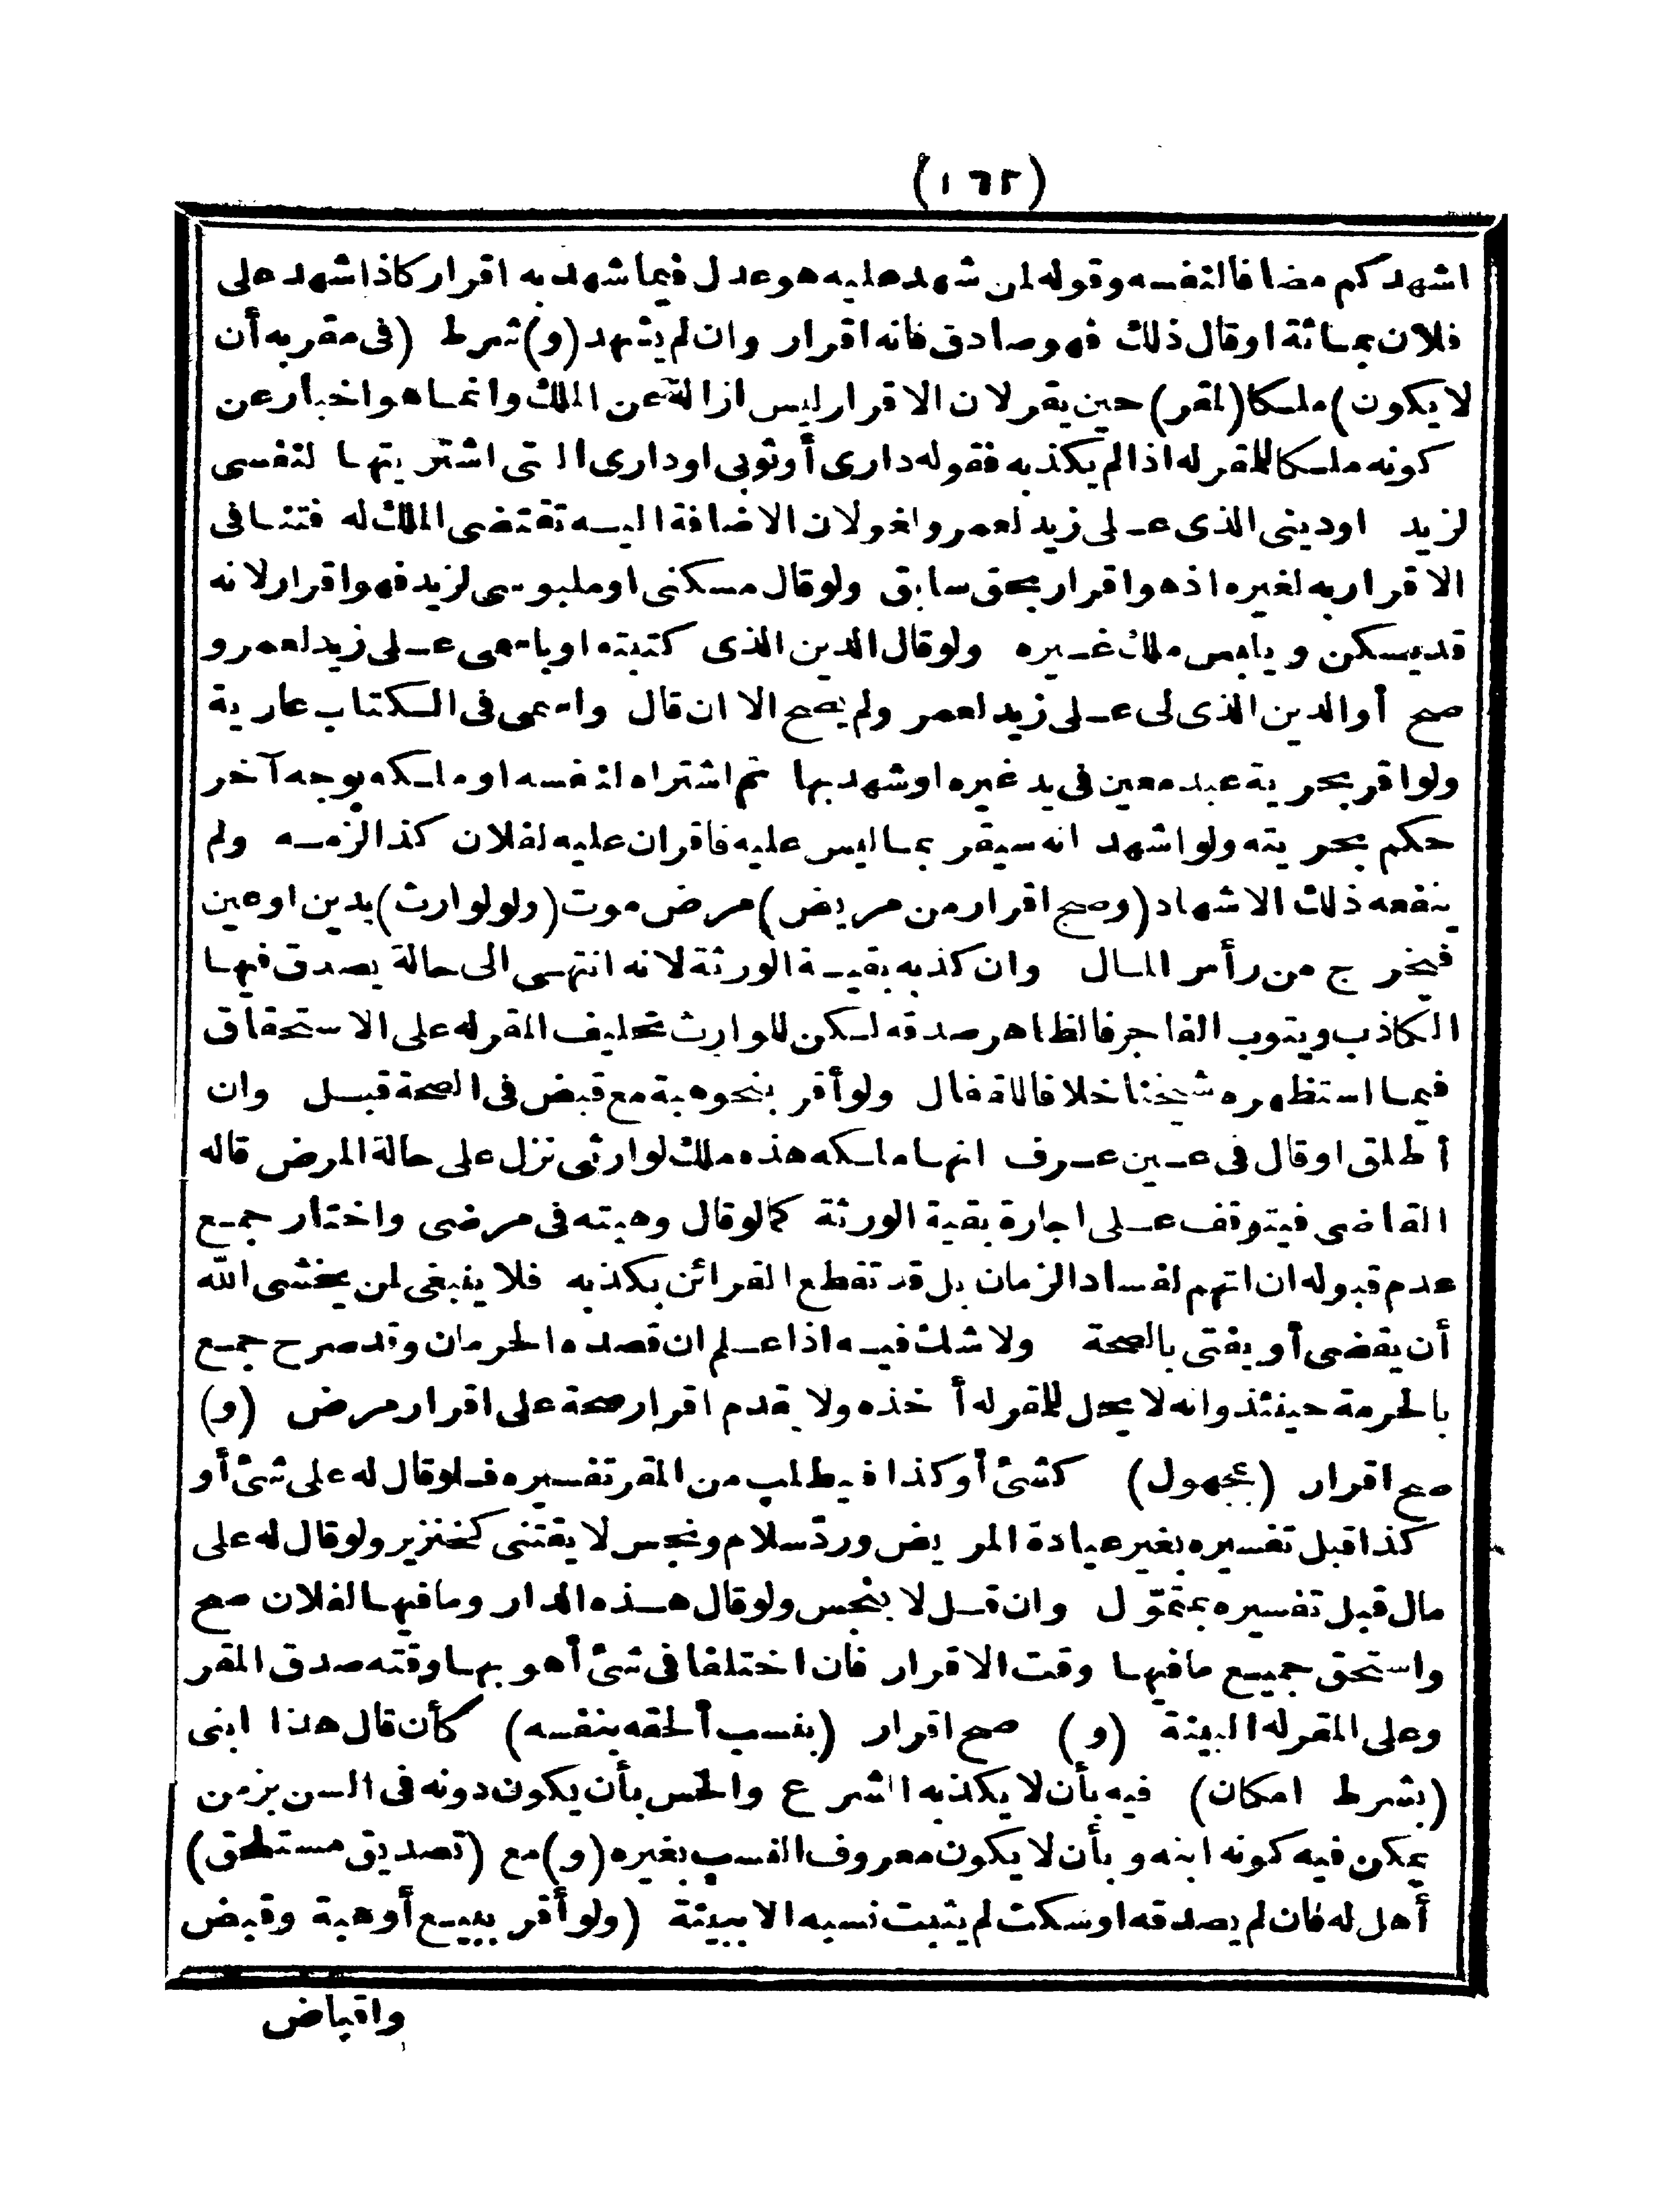 (١٦٢)
اشهدكم مضافا لنفسه وقوله لمن شهد عليه هو عدل فيما شهد به اقرار كاذا شهد على
فلان بمائة او قال ذلك فهو صادق فانه اقرار وان لم يشهد (و) شرط (فى مقر به أن
لا يكون) ملكا (لمقر) حين يقر لان الاقرار ليس ازالة عن الملك وانما هو اخبار عن
كونه ملكا للمقر له اذا لم يكذبه فقوله دارى أو ثوبى او دارى التى اشتريتها لنفسى
لزيد او دينى الذى على زيد لعمرو لغو لان الاضافة اليه تقتضى الملك له فتنافى
الاقرار به لغيره اذ هو اقرار بحق سابق ولو قال مسكنى او ملبوسى لزيد فهو اقرار لانه
قد يسكن ويلبس ملك غيره ولو قال الدين الذى كتبته او باسمى على زيد لعمرو
صح أو الدين الذى لى على زيد لعمر ولم يصح الا ان قال واسمى فى الكتاب عارية
ولو اقر بحرية عبد معين فى يد غيره او شهد بها ثم اشتراه لنفسه او ملكه بوجه آخر
حكم بحريته ولو اشهد انه سيقر بما ليس عليه فاقر ان عليه لفلان كذا لزمه ولم
ينفعه ذلك الاشهاد (وصح اقرار من مريض) مرض موت (ولو لوارث) بدين او عين
فيخرج من رأس المال وان كذبه بقية الورثة لانه انتهى الى حالة يصدق فيها
الكاذب ويتوب الفاجر فالظاهر صدقه لكن للوارث تحليف المقر له على الاستحقاق
فيما استظهره شيخنا خلافا للقفال ولو أقر بنحو هبة مع قبض فى الصحة قبل وان
أطلق او قال فى عين عرف انها ملكه هذه ملك لوارثى نزل على حالة المرض قاله
القاضى فيتوقف على اجازة بقية الورثة كما لو قال وهبته فى مرضى واختار جمع
عدم قبوله ان اتهم لفساد الزمان بل قد تقطع القرائن بكذبه فلا ينبغى لمن يخشى الله
أن يقضى أو يفتى بالصحة ولا شك فيه اذا علم ان قصده الحرمان وقد صرح جمع
بالحرمة حينئذ وانه لا يحل للمقر له أخذه ولا يقدم اقرار صحة على اقرار مرض (و)
صح اقرار (بمجهول) كشئ أو كذا فيطلب من المقر تفسيره فلو قال له على شئ أو
كذا قبل تفسيره بغير عيادة المريض وردّ سلام ونجس لا يقتنى كخنزير ولو قال له على
مال قبل تفسيره بمتموّل وان قل لا بنجس ولو قال هذه الدار وما فيها لفلان صح
واستحق جميع ما فيها وقت الاقرار فان اختلفا فى شئ أهو بها وقته صدق المقر
وعلى المقر له البينة (و) صح اقرار (بنسب ألحقه بنفسه) كأن قال هذا ابنى
(بشرط امكان) فيه بأن لا يكذبه الشرع والحس بأن يكون دونه فى السن بزمن
يمكن فيه كونه ابنه وبأن لا يكون معروف النسب بغيره (و) مع (تصديق مستلحق)
أهل له فان لم يصدقه او سكت لم يثبت نسبه الا ببينة (ولو أقر ببيع أو هبة وقبض
واقباض